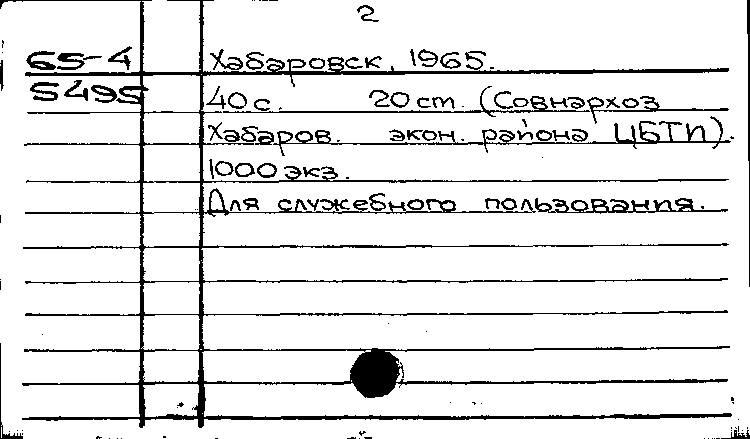 2
65-4 Хабаровск, 1965.
5495 40 с. 20 cm. (Совнархоз
Хабаров. экон. района ЦБТИ).
1000 экз.
Для служебного пользования.